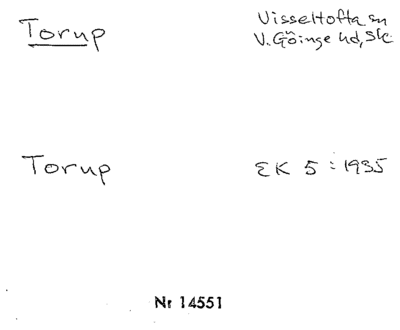 Torup
Visseltofta sn
V. Göinge hd, Sk
Torup
EK 5:1935
Nr 14551